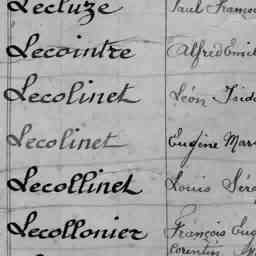 Lecluze Paul François
Lecointre Alfred Emil
Lecolinet Léon Isido
Lecolinet Eugène Mar
Lecollinet Louis Séra
Lecollonier François Eug
Corentin